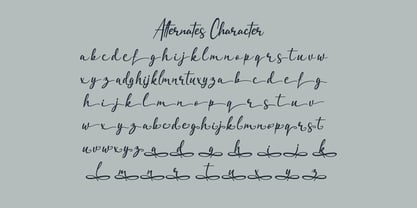 Alternates Character
a b c d e f g h i j k l m n o p q r s t u v w
x y z a d g h i j k l m n r t u x y z a b c d e f g
h i j k l m n o p q r s t u v
w x y z a b c d e g h i j k l m n o p q r s t
u v w x y z a d g h i j k
l m n r t u x y z